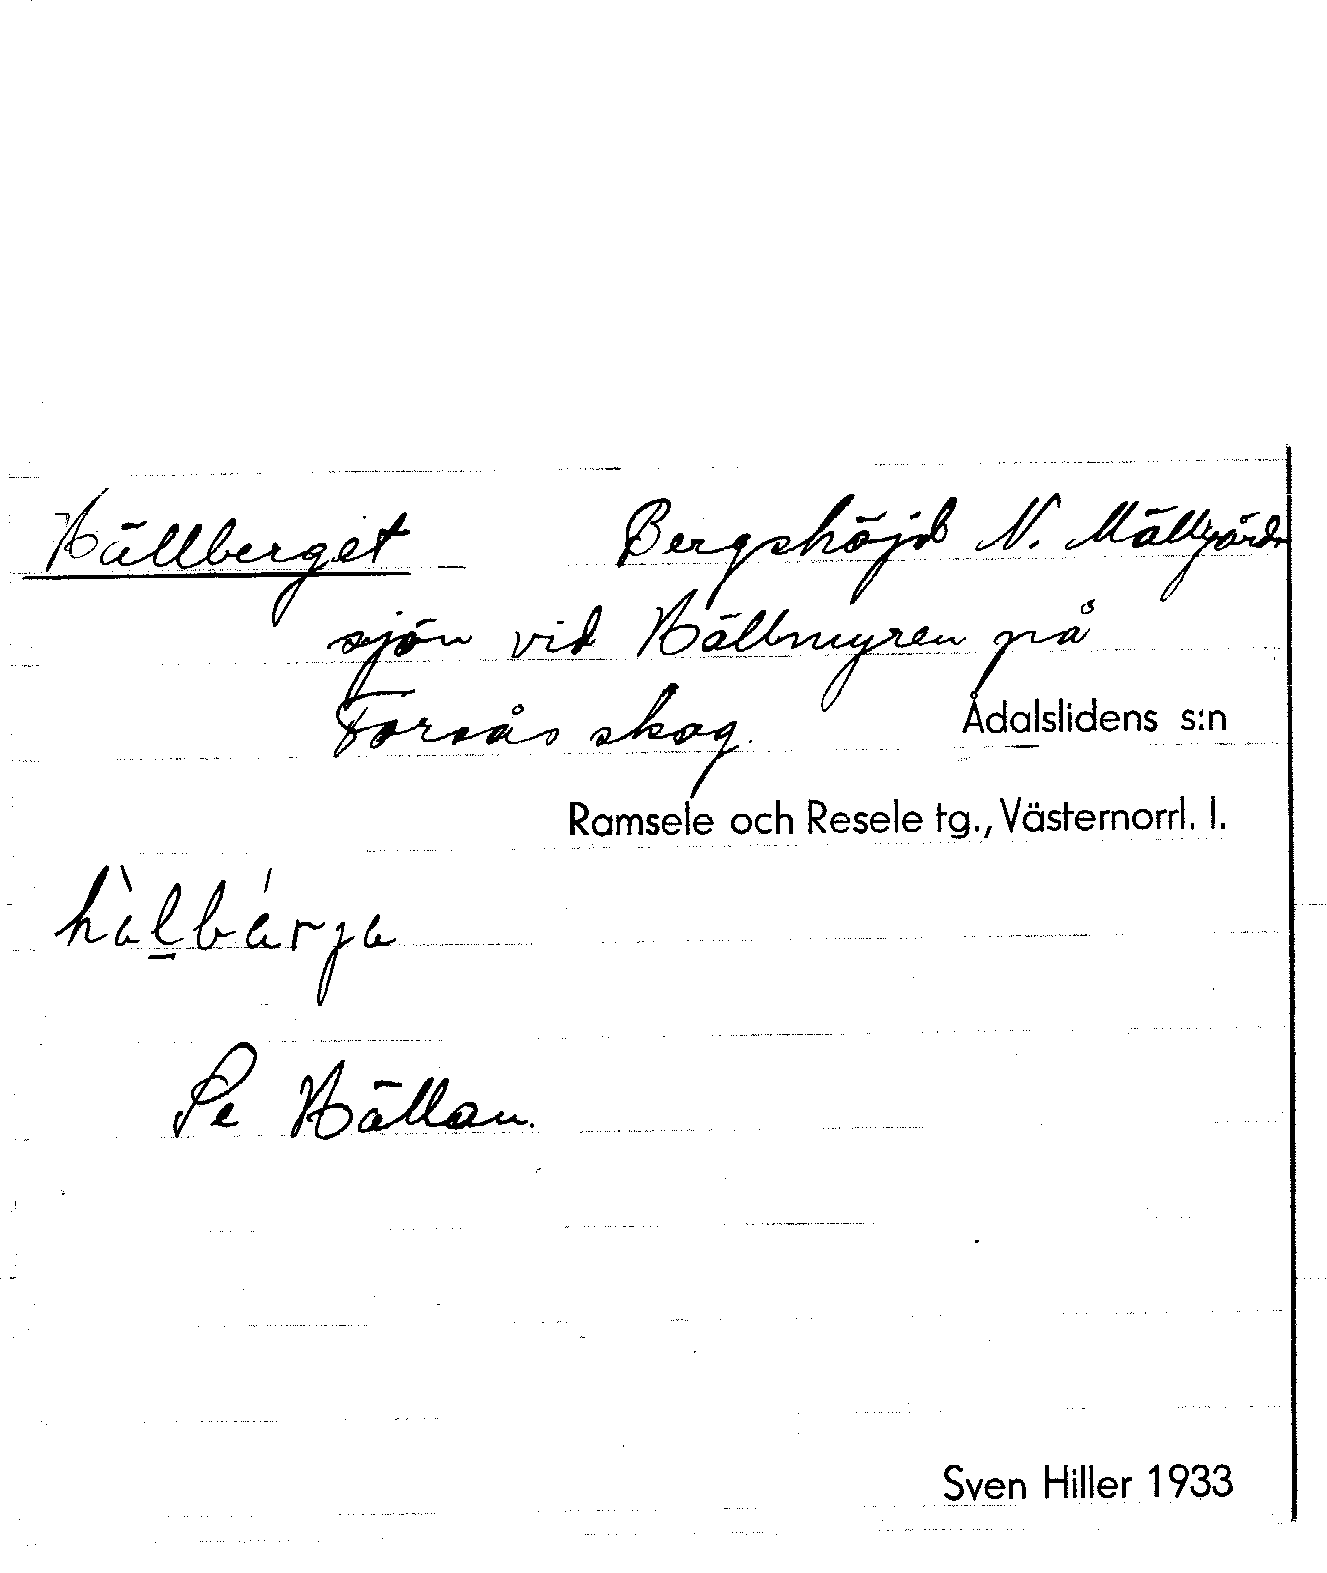 Hällberget Bergshöjd N. Mällgårds
sjön vid Hällmyren på
Forsås skog. Ådalslidens s:n
Ramsele och Resele tg., Västernorrl. l.
hàlbárja
Se Hällan.
Sven Hiller 1933